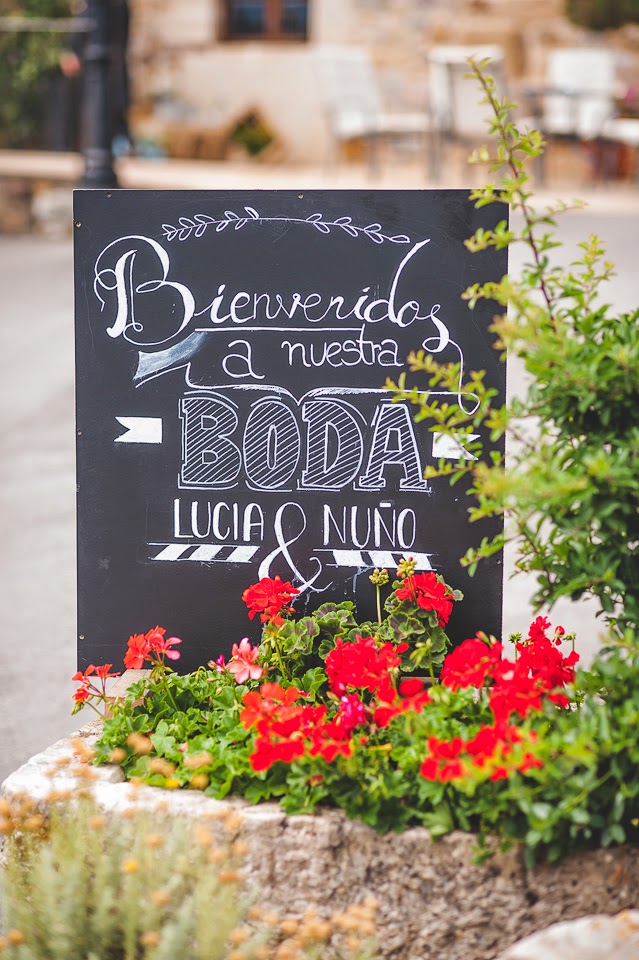 Bienvenidos
a nuestra
BODA
LUCIA & NUÑO